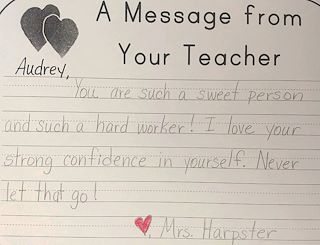 A Message from
Your Teacher
Audrey,
You are such a sweet person
and such a hard worker! I love your
strong confidence in yourself. Never
let that go!
Mrs. Harpster